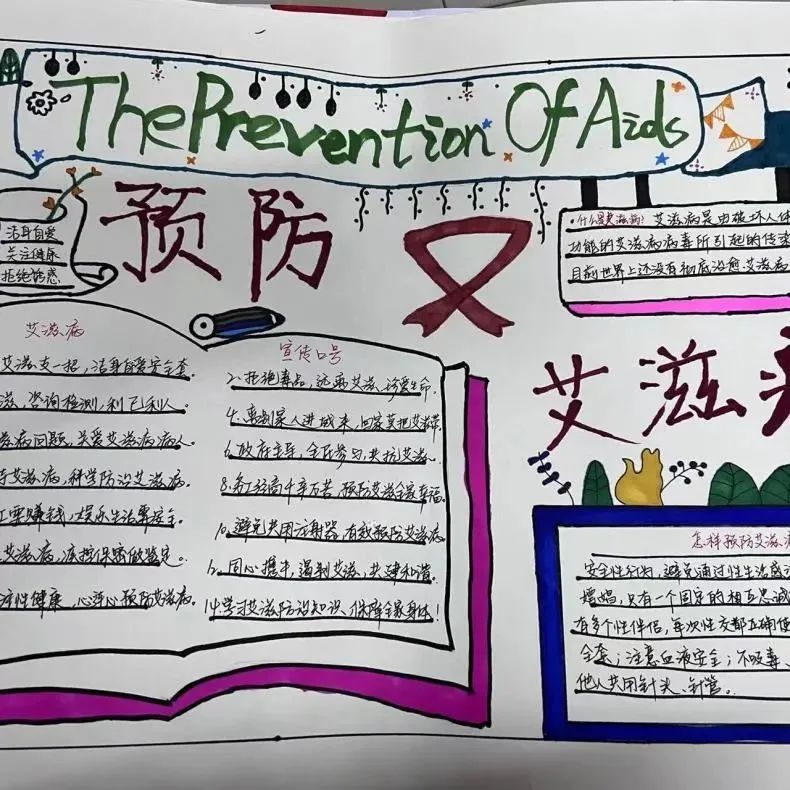 The Prevention Of Aids
预防
洁身自爱
关注健康
拒绝诱惑
·什么是艾滋病? 艾滋病是由破坏人体
功能的艾滋病病毒所引起的传染
目前世界上还没有彻底治愈艾滋病
艾滋病
艾滋支一招,洁身自爱安全套.
滋,咨询检测,利已利人.
滋病问题,关爱艾滋病病人.
待艾滋病,科学防治艾滋病.
要赚钱,娱乐生活要安全.
艾滋病,
性健康,心连心预防艾滋病.
宣传口号
2.拒绝毒品,远离艾滋、珍爱生命.
4.离别家人进城来,回家莫把艾滋带.
6.政府主导,全民参与,共抗艾滋.
8.打工经商千辛万苦,预防艾滋全家幸福.
10.避免共用注射器,有效预防艾滋病
12.同心携手,遏制艾滋,共建和谐.
14.学习艾滋防治知识、保障全家身体!
艾滋
怎样预防艾滋病
安全性行为,避免通过性生活感染
只有一个固定的相互忠诚
有多个性伴侣,每次性交都正确使
全套;注意血液安全;不吸毒、
他人共用针头、针管.